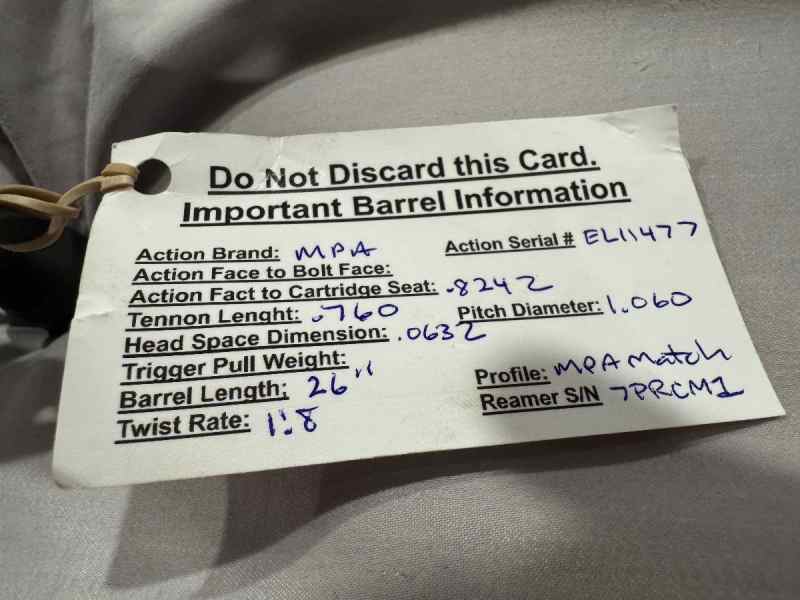 Do Not Discard this Card.
Important Barrel Information
Action Brand: MPA Action Serial # EL11477
Action Face to Bolt Face:
Action Fact to Cartridge Seat: .8242
Tennon Lenght: .760 Pitch Diameter: 1.060
Head Space Dimension: .0632
Trigger Pull Weight:
Barrel Length; 26" Profile: MPA Match
Twist Rate: 1:8 Reamer S/N 7PRCM1